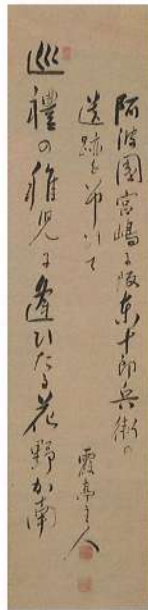 阿波国宮嶋に阪東十郎兵衛の
遺跡を弔いて
巡禮の稚児に逢ひたる花野か南
霞亭主人